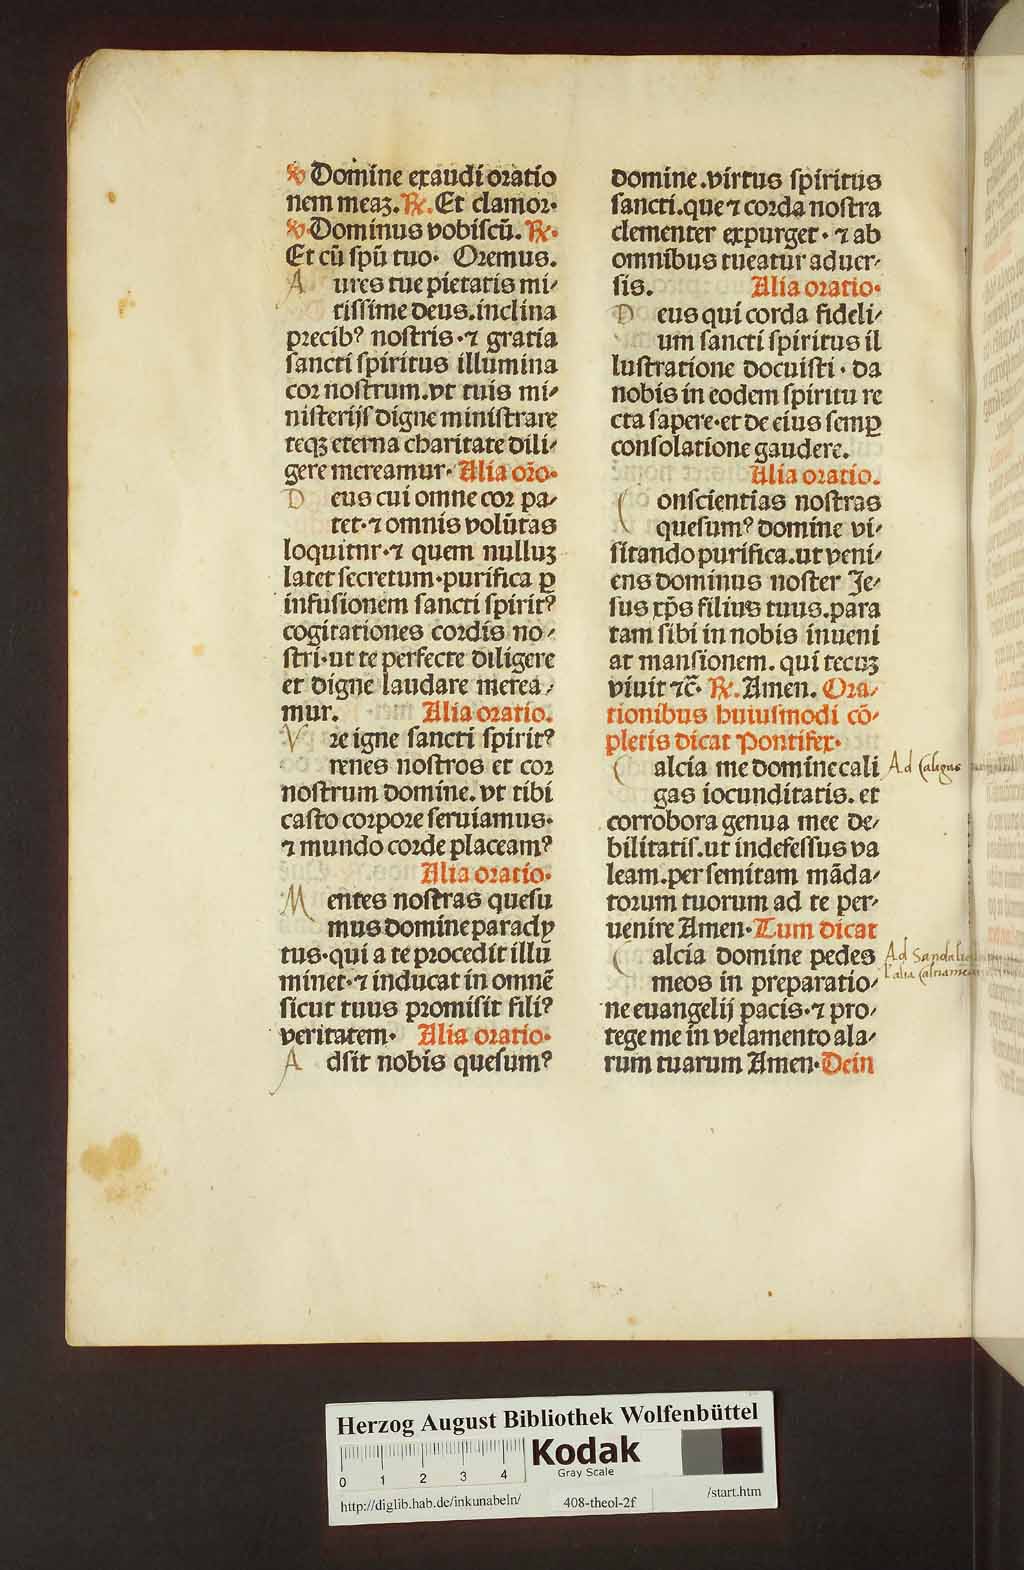 ℣ Domine exaudi oratio
nem meaꝫ. ℟. Et clamor.
℣. Dominus vobiscū. ℟.
Et cū spū tuo. Oremus.
A ures tue pietatis mi-
tissime deus. inclina
precibꝰ nostris. ⁊ gratia
sancti spiritus illumina
cor nostrum. vt tuis mi-
nisterijs digne ministrare
teqꝫ eterna charitate dili-
gere mereamur. Alia orō.
D eus cui omne cor pa-
tet. ⁊ omnis volūtas
loquitnr. ⁊ quem nulluꝫ
latet secretum. purifica ꝑ
infusionem sancti spiritꝰ
cogitationes cordis no-
stri. ut te perfecte diligere
et digne laudare merea-
mur. Alia oratio.
V re igne sancti spiritꝰ
renes nostros et cor
nostrum domine. vt tibi
casto corpore seruiamus.
⁊ mundo corde placeamꝰ
Alia oratio.
M entes nostras quesu
mus domine paracly
tus. qui a te procedit illū
minet. ⁊ inducat in omnē
sicut tuus promisit filiꝰ
veritatem. Alia oratio.
A dsit nobis quesumꝰ
domine. virtus spiritus
sancti. que ⁊ corda nostra
clementer expurget. ⁊ ab
omnibus tueatur aduer-
sis. Alia oratio.
D eus qui corda fideli-
um sancti spiritus il
lustratione docuisti. da
nobis in eodem spiritu re
cta sapere. et de eius semꝑ
consolatione gaudere.
Alia oratio.
C onscientias nostras
quesumꝰ domine vi-
sitando purifica. ut veni-
ens dominus noster Je-
sus xp̄s filius tuus. para
tam sibi in nobis inueni
at mansionem. qui tecuꝫ
viuit ⁊c̄. ℟. Amen. Ora-
tionibus huiusmodi cō-
pletis dicat Pontifex.
C alcia me domine cali
gas iocunditatis. et
corrobora genua mee de-
bilitatis. ut indefessus va
leam. per semitam māda-
torum tuorum ad te per-
uenire Amen. Tum dicat
C alcia domine pedes
meos in preparatio-
ne euangelij pacis. ⁊ pro-
tege me in velamento ala-
rum tuarum Amen. Dein
Ad Caligas
Ad Sandalia
Herzog August Bibliothek Wolfenbüttel
0 1 2 3 4
Kodak
Gray Scale
http://diglib.hab.de/inkunabeln/ 408-theol-2f /start.htm